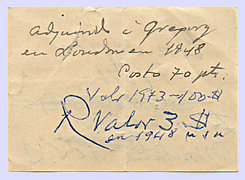 adquirido à Gregory
en London en 1948
Costo 70 pts.
Valor 1973-100-$
R Valor 3 $
en 1948